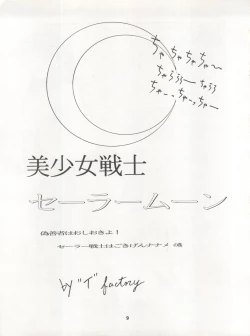 ちゃちゃちゃ〜
ちゃららー ちゃらら
ちゃーっちゃーっちゃー
美少女戦士
セーラームーン
偽善者はおしおきよ！
セーラー戦士はごきげんナナメ の
by "T" factory